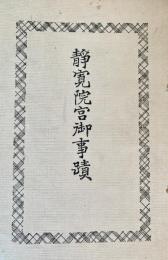 靜寬院宮御事蹟